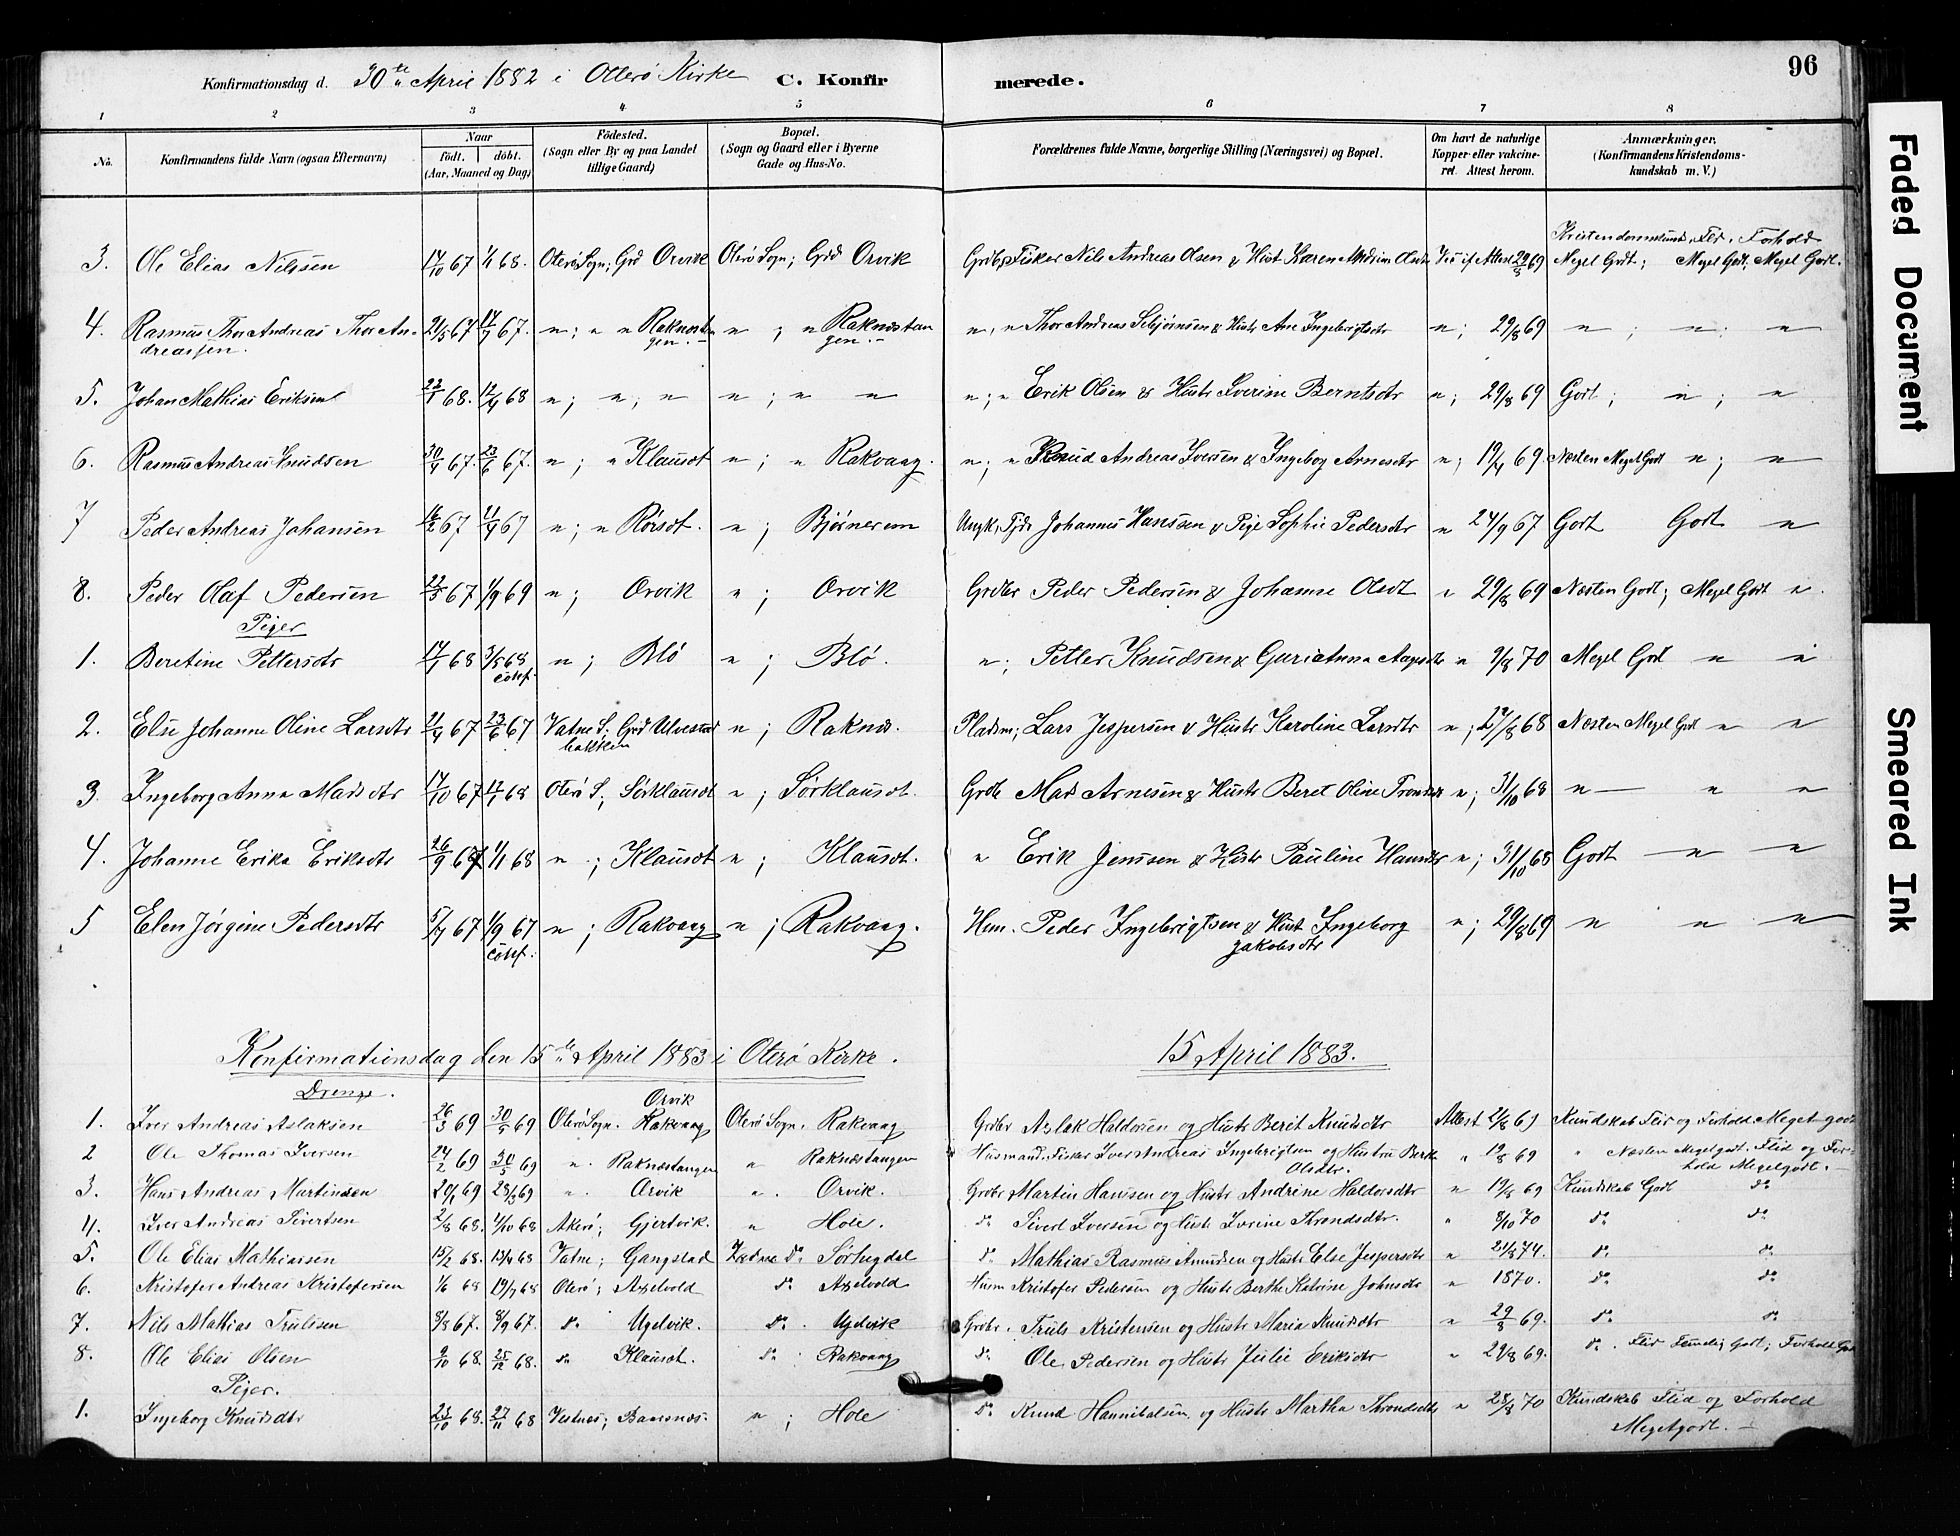 96
Konfirmationsdag d. 30te April 1882 i Otterø Kirke C. Konfirmerede.
1 2 3 4 5 6 7 8
No. Konfirmandens fulde Navn (ogsaa Efternavn) Naar födt. döbt. (Aar, Maaned og Dag) Födested. (Sogn eller By og paa Landet tillige Gaard) Bopæl. (Sogn og Gaard eller i Byerne Gade og Hus-No. Forældrenes fulde Navne, borgerlige Stilling (Næringsvei) og Bopæl. Om havt de naturlige Kopper eller vakcineret. Attest herom. Anmærkninger, (Konfirmandens Kristendomskundskab m. V.)
3. Ole Elias Nilssen 17/10 67 1/1 68. Oterø Sogn; Grd Orvik Oterø Sogn; Grd Orvik Fisker Nils Andreas Olsen & Hust Karen Olsdtr Attest 29/8 69 Flid. Forhold Meget Godt; Meget Godt; Meget Godt.
4. Rasmus Thor Andreas Thor Andreassen. 21/5 67 14/7 67. "; " " Raknestangen. " ; " Raknestangen. "; " Thor Andreas Sebjørnsen & Hustr Ane Ingebrigtsdtr "; 29/8 69 " ; " ; "
5. Johan Mathias Eriksen 23/1 68. 12/4 68 "; "; " "; " " "; " Erik Olsen & Hustr Iverine Berntsdtr "; 29/8 69 Godt; "; "
6. Rasmus Andreas Knudsen 30/4 67. 23/6 67. "; " Klausdt "; " Rakvaag. "; " Knud Andreas Iversen & Ingeborg Arnesdtr "; 19/4 69. Næsten Meget Godt "; "
7 Peder Andreas Johansen 16/2 67 11/4 67 "; " Rørsdt. "; Bjørnerem Ungk. Johannes Hanssen & Pige Sophie Pedersdtr " 24/9 67 Godt Godt "
8. Peder Olaf Pedersen 22/5 67 1/9 69 "; Orvik "; Orvik Grdbr Peder Pedersen & Johanne Olsdt " 29/8 69 Næsten Godt; Meget Godt ".
Piger
1. Beretine Pettersdtr 17/1 68 3/5 68 conf. "; Blø "; Blø. "; Petter Knudsen & Guri Anna Aagesdtr " 9/8 70 Meget Godt " "
2. Else Johanne Oline Larsdtr 21/4 67 23/6 67 Vatne S; Grd Ulvestadbakken "; Raknes. Pladsm; Lars Jespersen & Hustr Karoline Larsdtr "; 27/8 68 Næsten Meget Godt " "
3. Ingeborg Anna Madsdtr 17/10 67 12/1 68 Oterø S; Sørklausdt "; Sørklausdt. Grdb Mads Arnesen & Hustr Beret Oline "; 31/10 68 " " "
4. Johanne Erika Eriksdtr 26/9 67 1/1 68 " ; Klausdt "; Klausdt. " Erik Jenssen & Hustr Pauline Hansdtr "; 31/10 68 Godt " "
5 Elen Jørgine Pedersdtr 5/7 67 1/9 67 conf. "; Rakvaag "; Rakvaag. Hum. Peder Ingebrigtsen & Hust Ingeborg Jakobsdtr "; 29/8 69 " " "
Konfirmationsdag den 15de April 1883 i Oterø Kirke. 15 April 1883.
Drenge.
1. Iver Andreas Aslaksen 26/3 69 30/5 69 Oterø Sogn. Orvik Rakvaag Oterø Sogn. Rakvaag Grdbr Aslak Haldorsen og Hustr Berit Knudsdtr Attest 21/8 69 Kundskab Flid og Forhold Meget godt
2 Ole Thomas Iversen 24/2 69 30/5 69 ". Raknæstangen " Raknæstangen Husmand. Fisker Iver Andreas Ingebrigtsen og Hustru Olsdtr. " 19/8 69 " Næsten Megetgodt. Flid og Forhold Megetgodt.
3. Hans Andreas Martinssen 20/1 69 28/3 69 ". Orvik ". Orvik. Grdbr Martin Hanssen og Hustr Andrine Haldorsdtr " 19/8 69 Kundskab Godt do
4. Iver Andreas Sivertsen 2/8 68. 4/10 68 Akerø; Gjertvik. " Hole. do Sivert Iversen og Hustr Iverine Throndsdtr. " 8/10 70 do do
5. Ole Elias Mathiassen 15/2 68. 13/4 68 Vatne; Gangstad Vatne do Sørhegdal do Mathias Rasmus Amundsen og Hustr Else Jespersdtr " 21/8 74. do do
6. Kristofer Andreas Kristofersen 1/6 68 19/7 68 Oterø; Axelvold do Axelvold Husm Kristofer Pedersen og Hustr Berthe Katrine Johnsdtr " 1870. do do
7. Nils Mathias Trulssen 8/8 67. 8/9 67. do Ugelvik. do. Ugelvik Grdbr. Truls Kristensen og Hustr Maria Knudsdtr " 29/8 69. do do
8. Ole Elias Olsen 9/10 68. 25/12 68. do Klausdt. do Rakvaag do Ole Pedersen og Hustr Julie Eriksdtr " 29/8 69. do. Flid Godt; Forhold Godt
Piger.
1. Ingeborg Knudsdtr 23/10 68. 27/11 68 Vestnes; Baasnæs. "; Hole do Knud Hannibalsen og Hustr Martha Throndsdtr " 28/8 70 Kundskab Flid og Forhold Megetgodt.
Faded Document
Smeared Ink